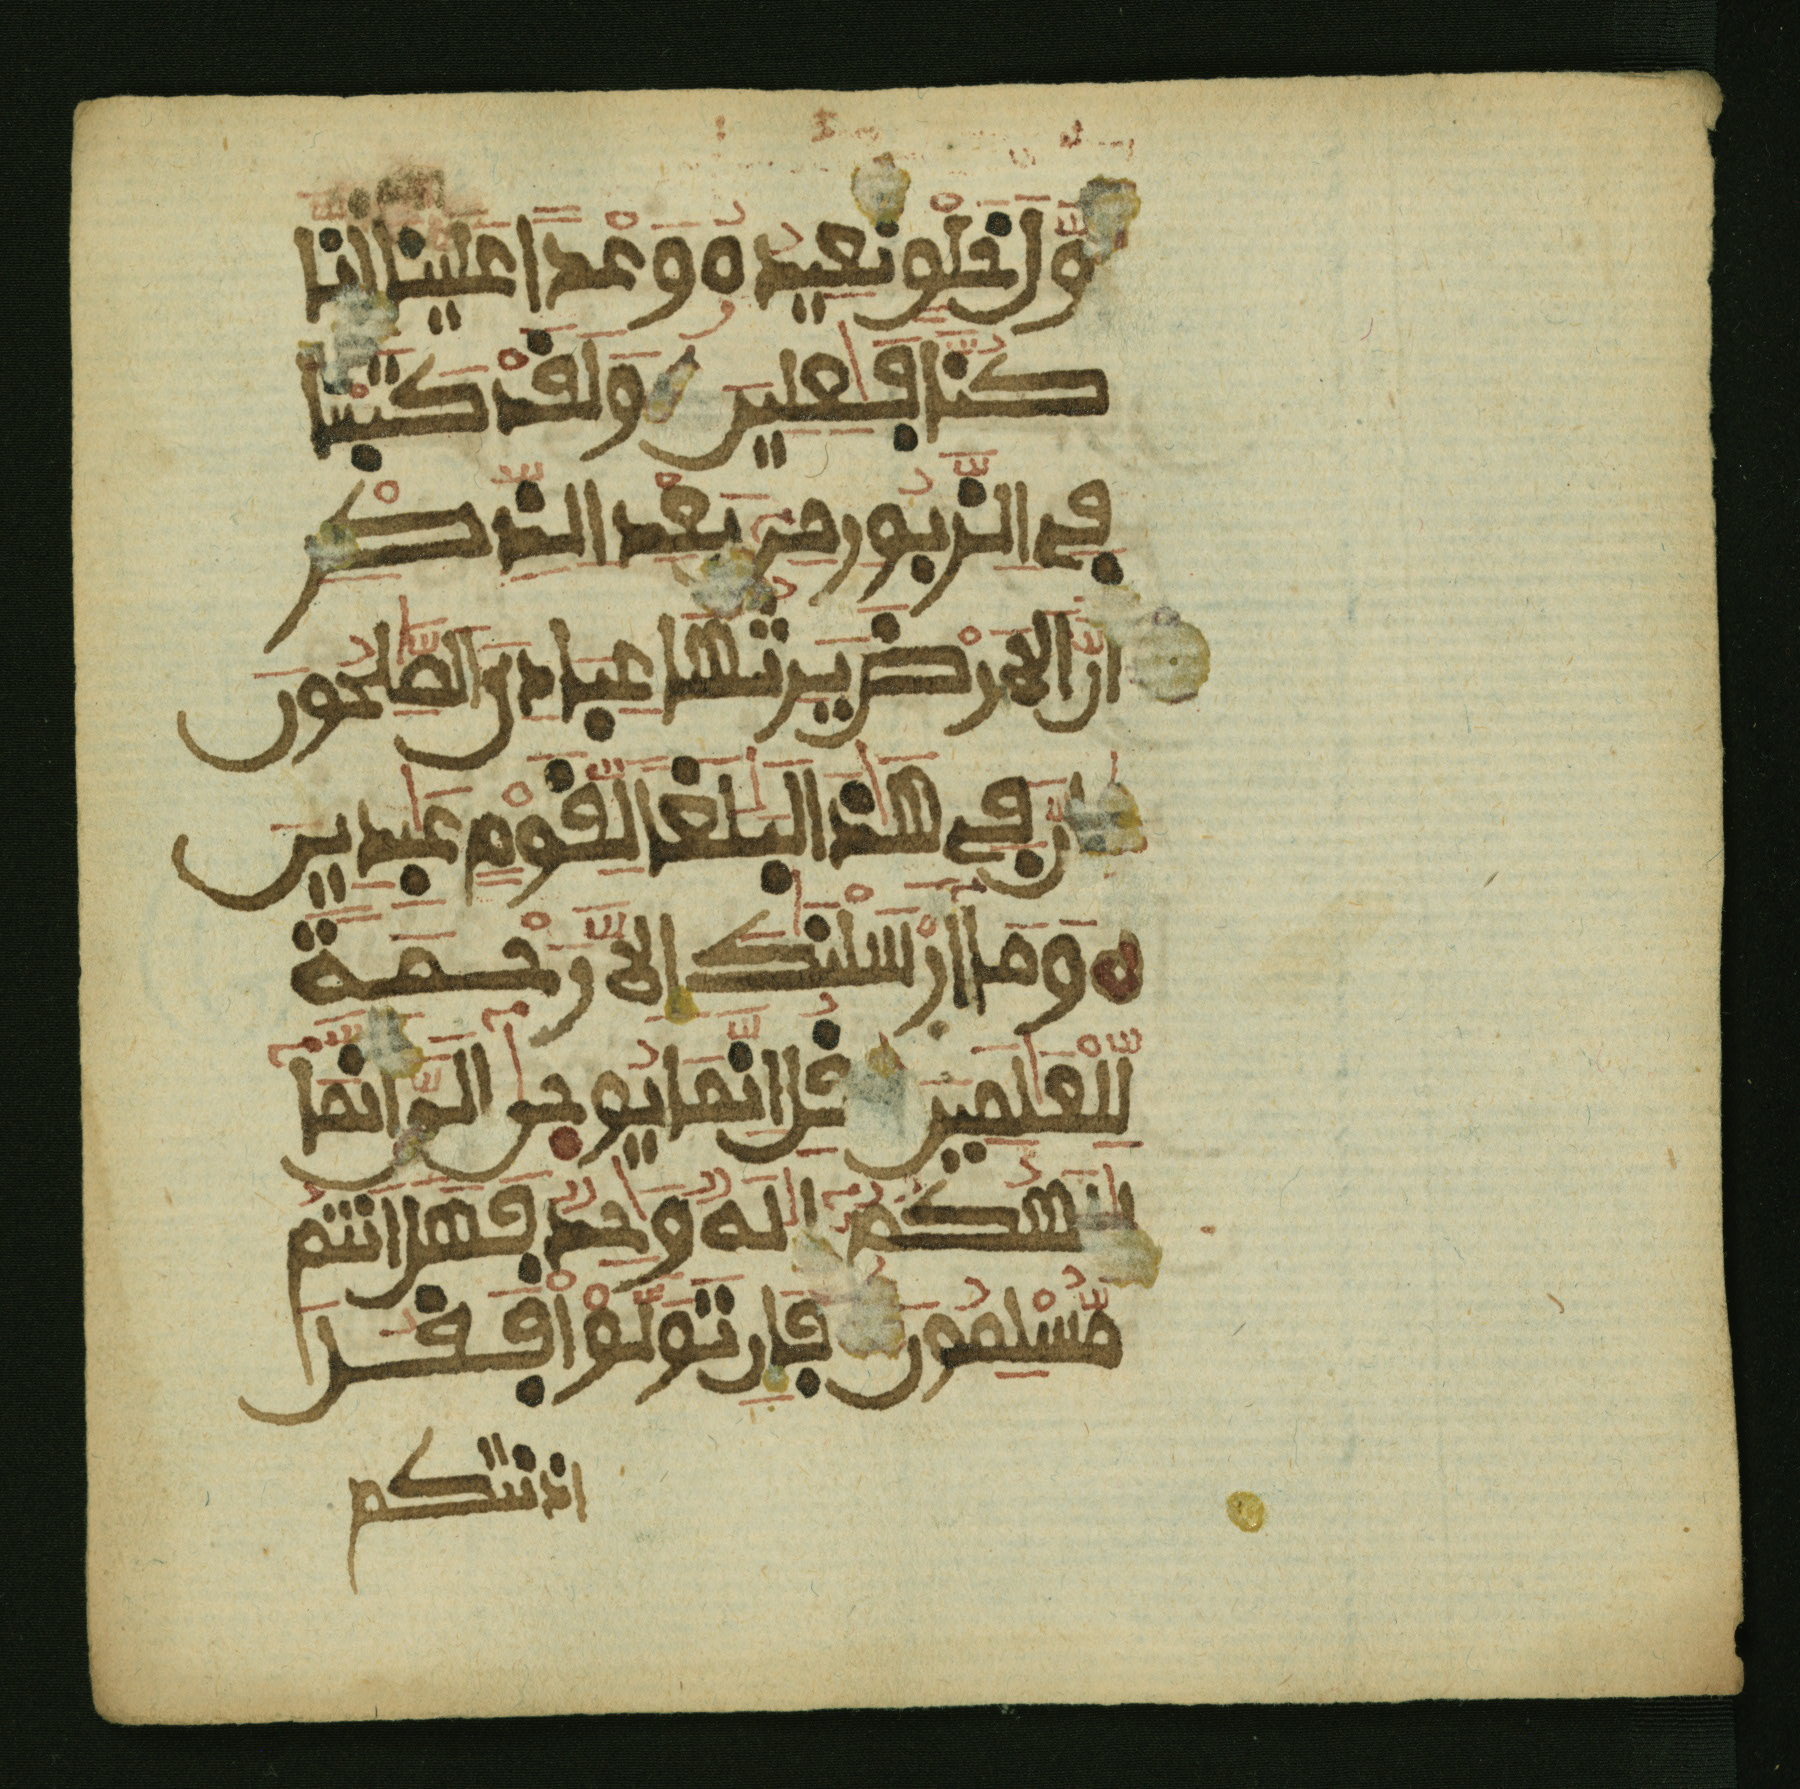 وَّلَ خَلْقٍ نُّعِيدُهُۥ وَعْداً عَلَيْنَا إِنَّا
كُنَّا فَٰعِلِينَ وَلَقَدْ كَتَبْنَا
فِي الزَّبُورِ مِنۢ بَعْدِ الذِّكْرِ
أَنَّ الَارْضَ يَرِثُهَا عِبَادِيَ الصَّٰلِحُونَ
إِنَّ فِي هَٰذَا لَبَلَٰغاً لِّقَوْمٍ عَٰبِدِينَ
وَمَا أَرْسَلْنَٰكَ إِلَّا رَحْمَةً
لِّلْعَٰلَمِينَ قُلِ انَّمَا يُوحَىٰ إِلَيَّ أَنَّمَا
إِلَٰهُكُمُ إِلَٰهٌ وَٰحِدٌ فَهَلَ انتُم
مُّسْلِمُونَ فَإِن تَوَلَّوْا فَقُلَ
اذنتكم